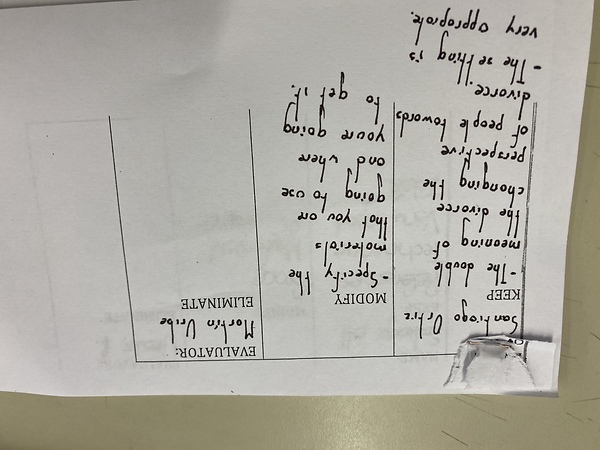 Santiago Ortiz
EVALUATOR:
Martín Uribe
KEEP
- The double
meaning of
the divorce
changing the
perspective
of people towards
divorce
- The setting is
very appropiate.
MODIFY
- Specify the
materials
that you are
going to use
and where
you're going
to get it.
ELIMINATE